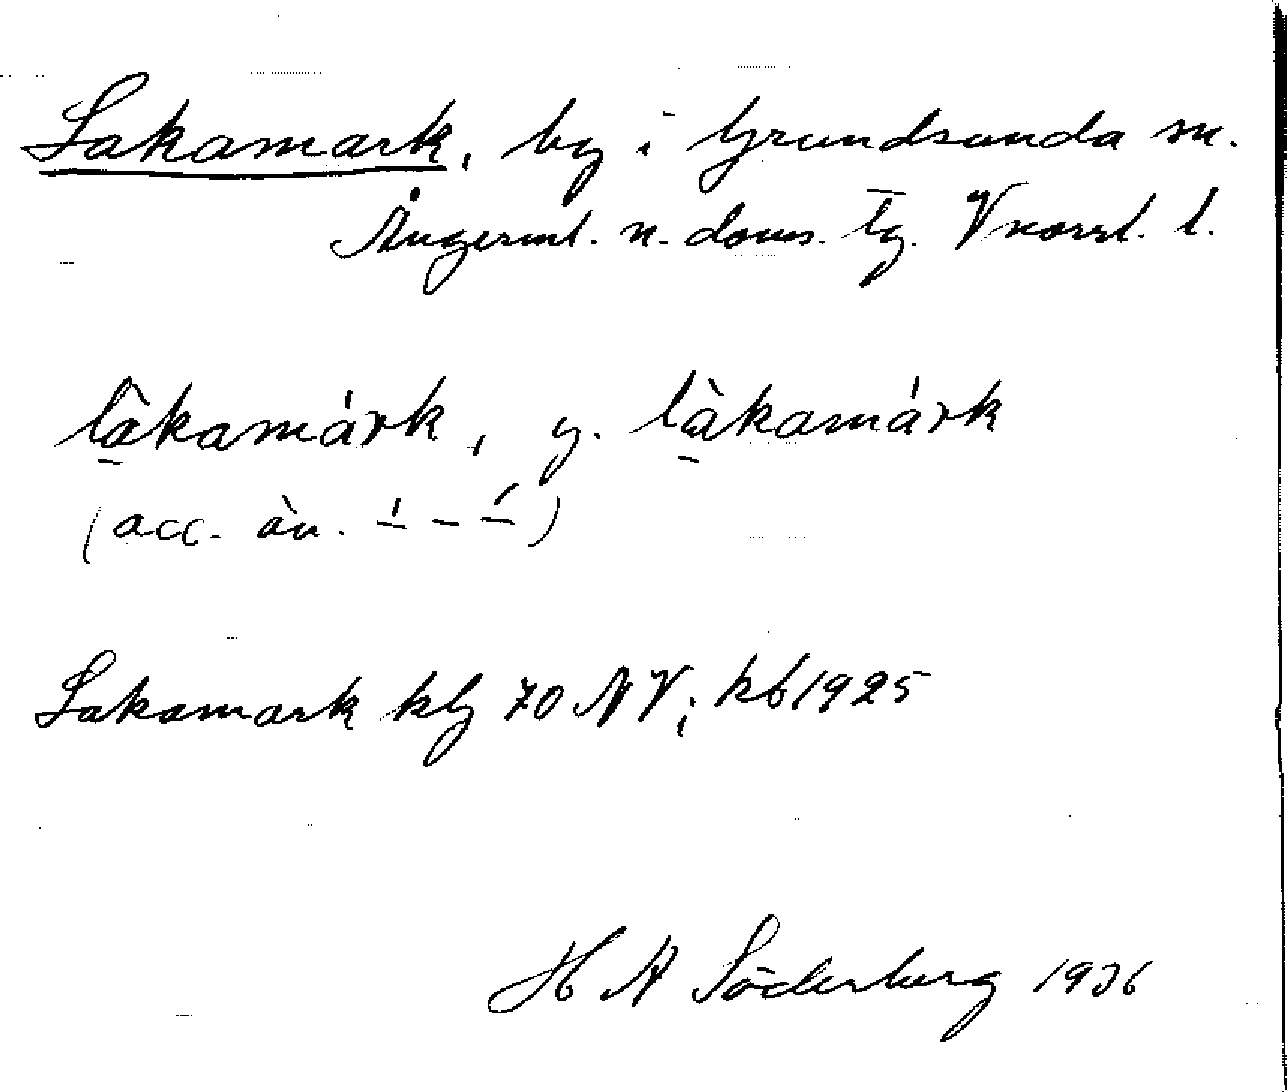 Lakamark, by i Grundsunda sn.
Ångerml. n. doms. tg. Vnorrl. l.
là̱kamárk, y. là̱kamárk
(acc. äv. –́ – –́)
Lakamark kbg 70 NV; kb 1925
H A Söderberg 1936